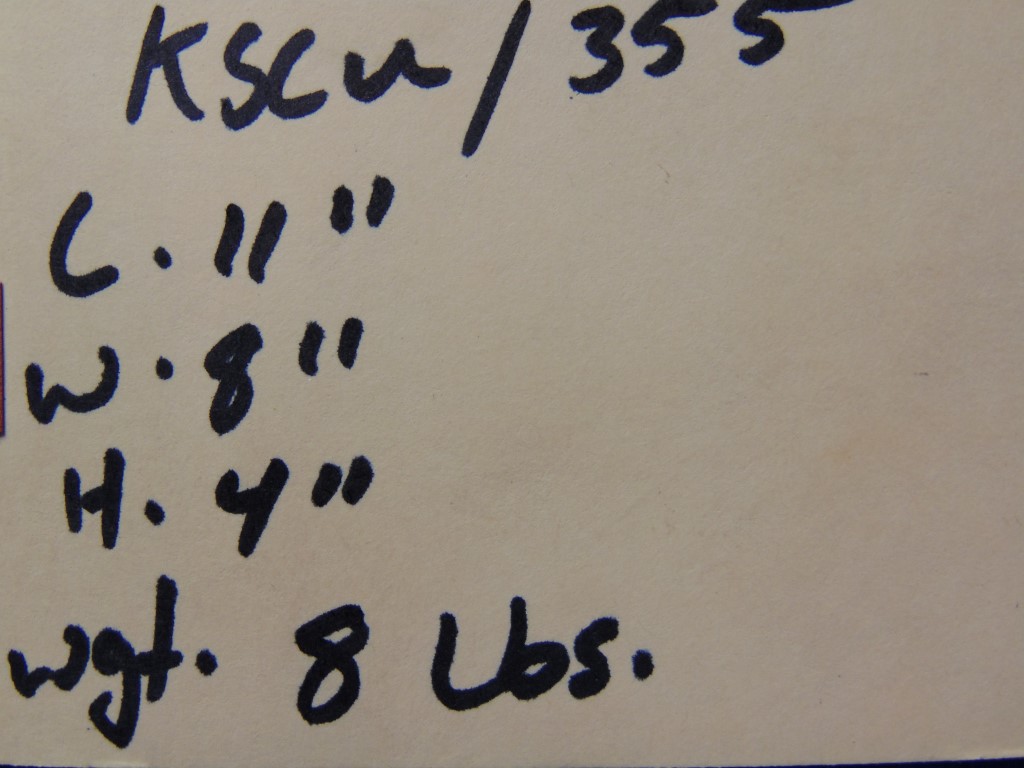 KSCU/355
L. 11"
W. 8"
H. 4"
wgt. 8 Lbs.